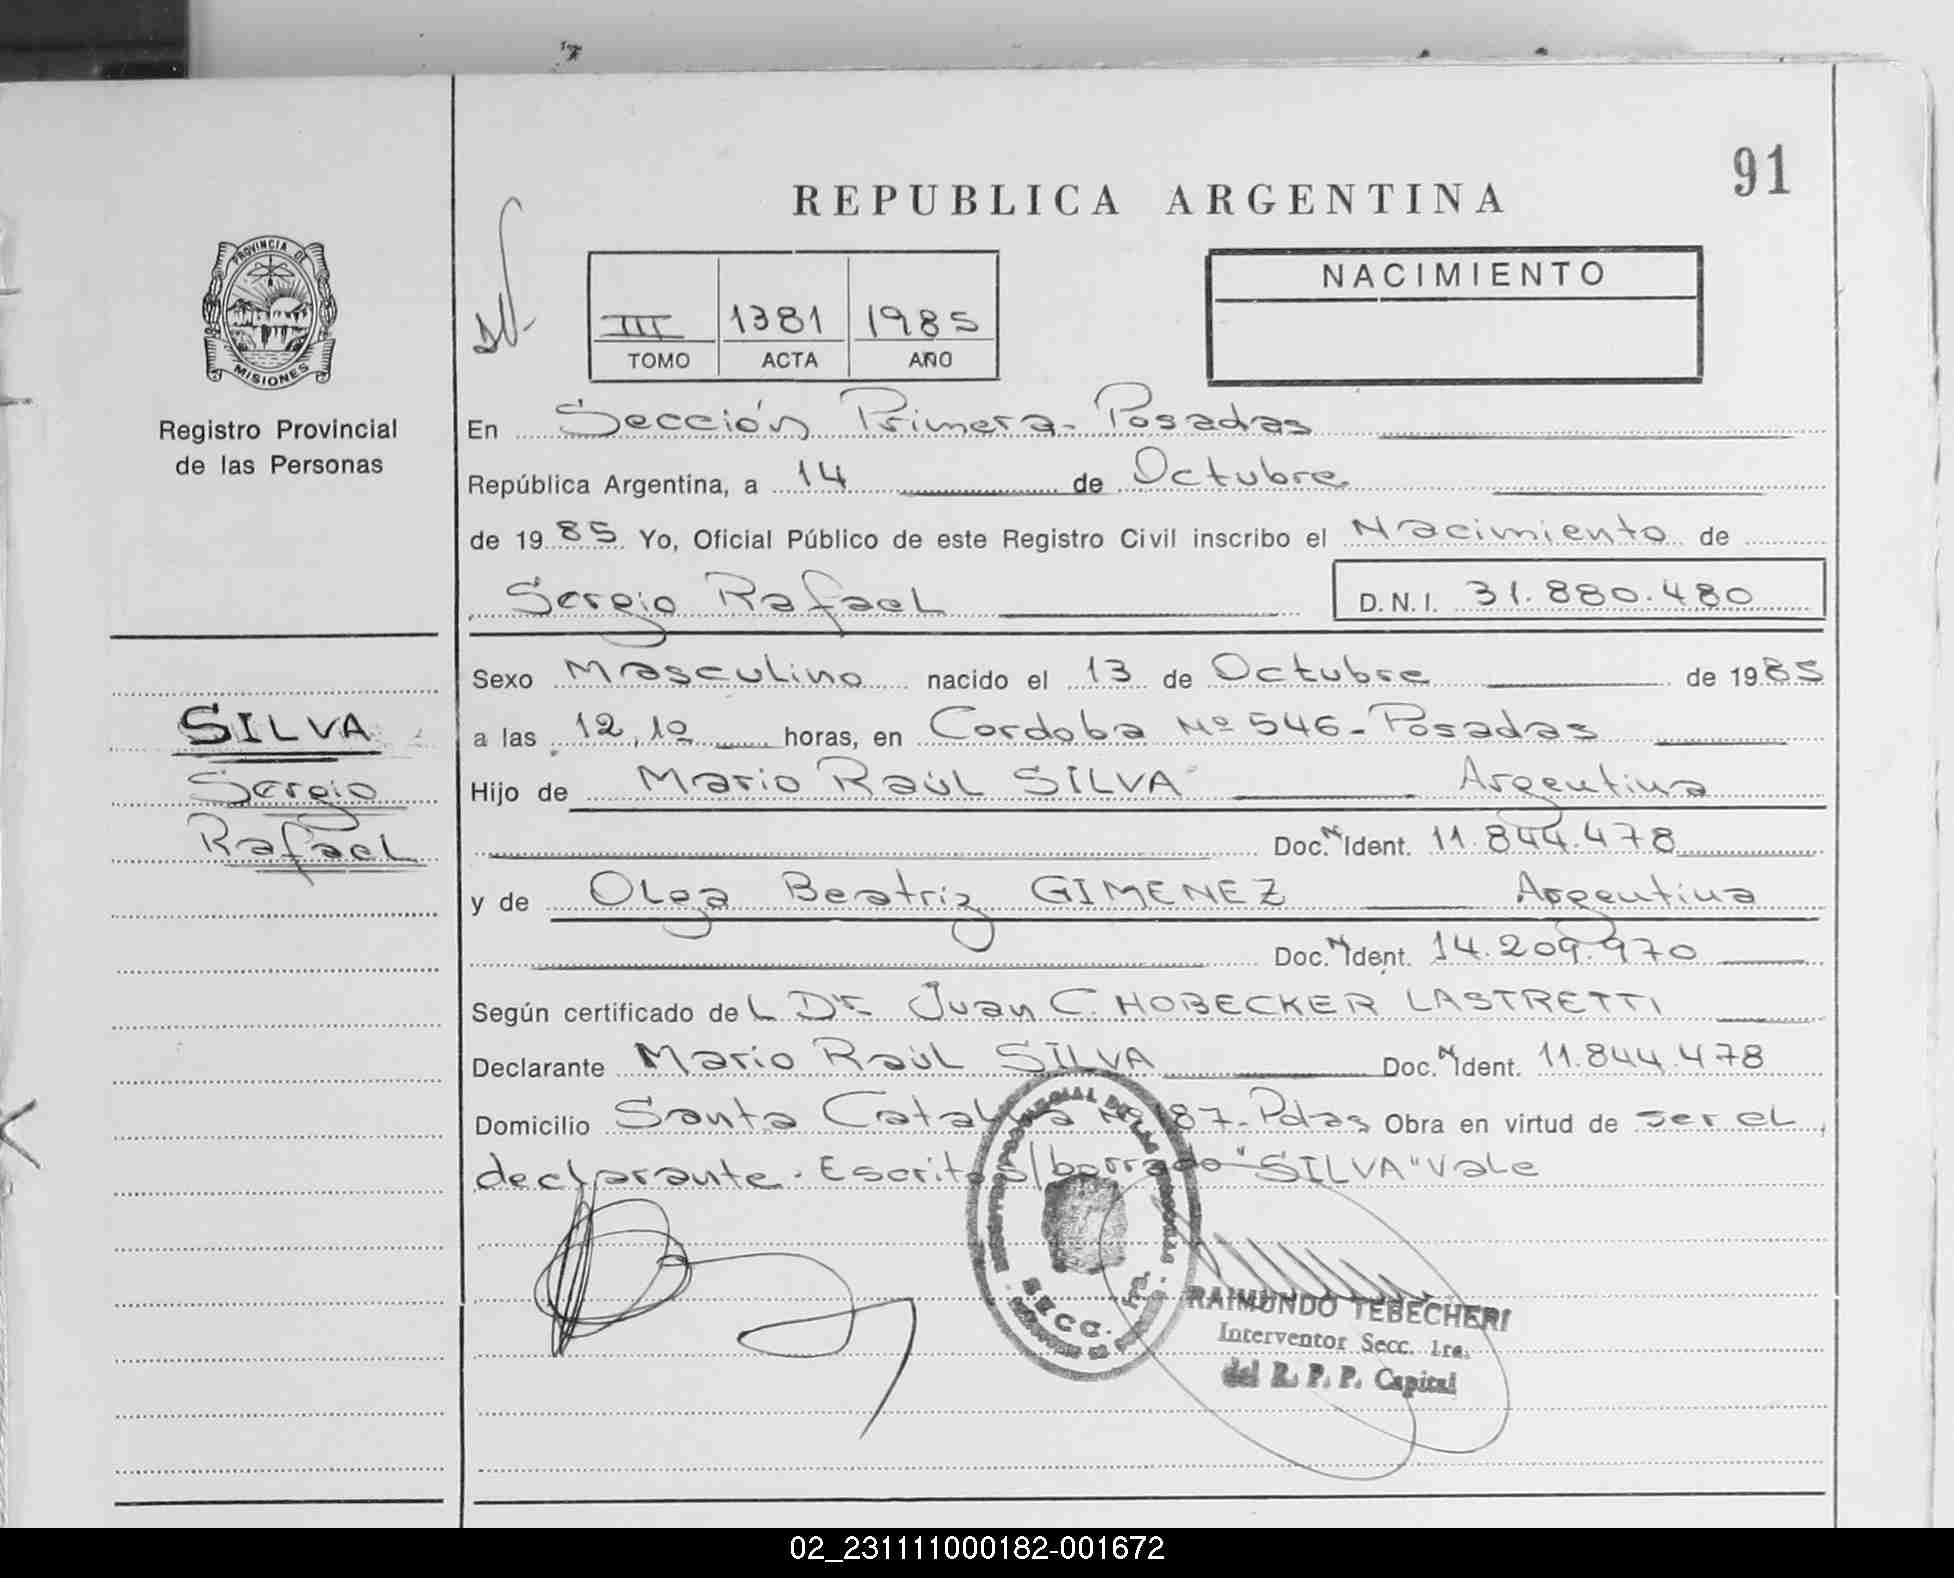 91
REPUBLICA ARGENTINA
PROVINCIA DE
MISIONES
Registro Provincial
de las Personas
III 1381 1985
TOMO ACTA AÑO
NACIMIENTO
En Sección Primera- Posadas
República Argentina, a 14 de Octubre
de 1985 Yo, Oficial Público de este Registro Civil inscribo el Nacimiento de
Sergio Rafael D.N.I. 31.880.480
Sexo Masculino nacido el 13 de Octubre de 1985
a las 12,10 horas, en Cordoba Nº 546- Posadas
SILVA
Sergio
Rafael
Hijo de Mario Raúl SILVA Argentina
Doc. N Ident. 11.844.478
y de Olga Beatriz GIMENEZ Argentina
Doc. N Ident. 14.209.970
Según certificado del Dr. Juan C. HOBECKER LASTRETTI
Declarante Mario Raúl SILVA Doc. N Ident. 11.844.478
Domicilio Santa Catalina Nº 187- Pdas Obra en virtud de ser el
declarante. Escrito s/borrado "SILVA" Vale
SECC. 1ra.
RAIMUNDO TEBECHERI
Interventor Secc. 1ra.
del R. P. P. Capital
02_231111000182-001672